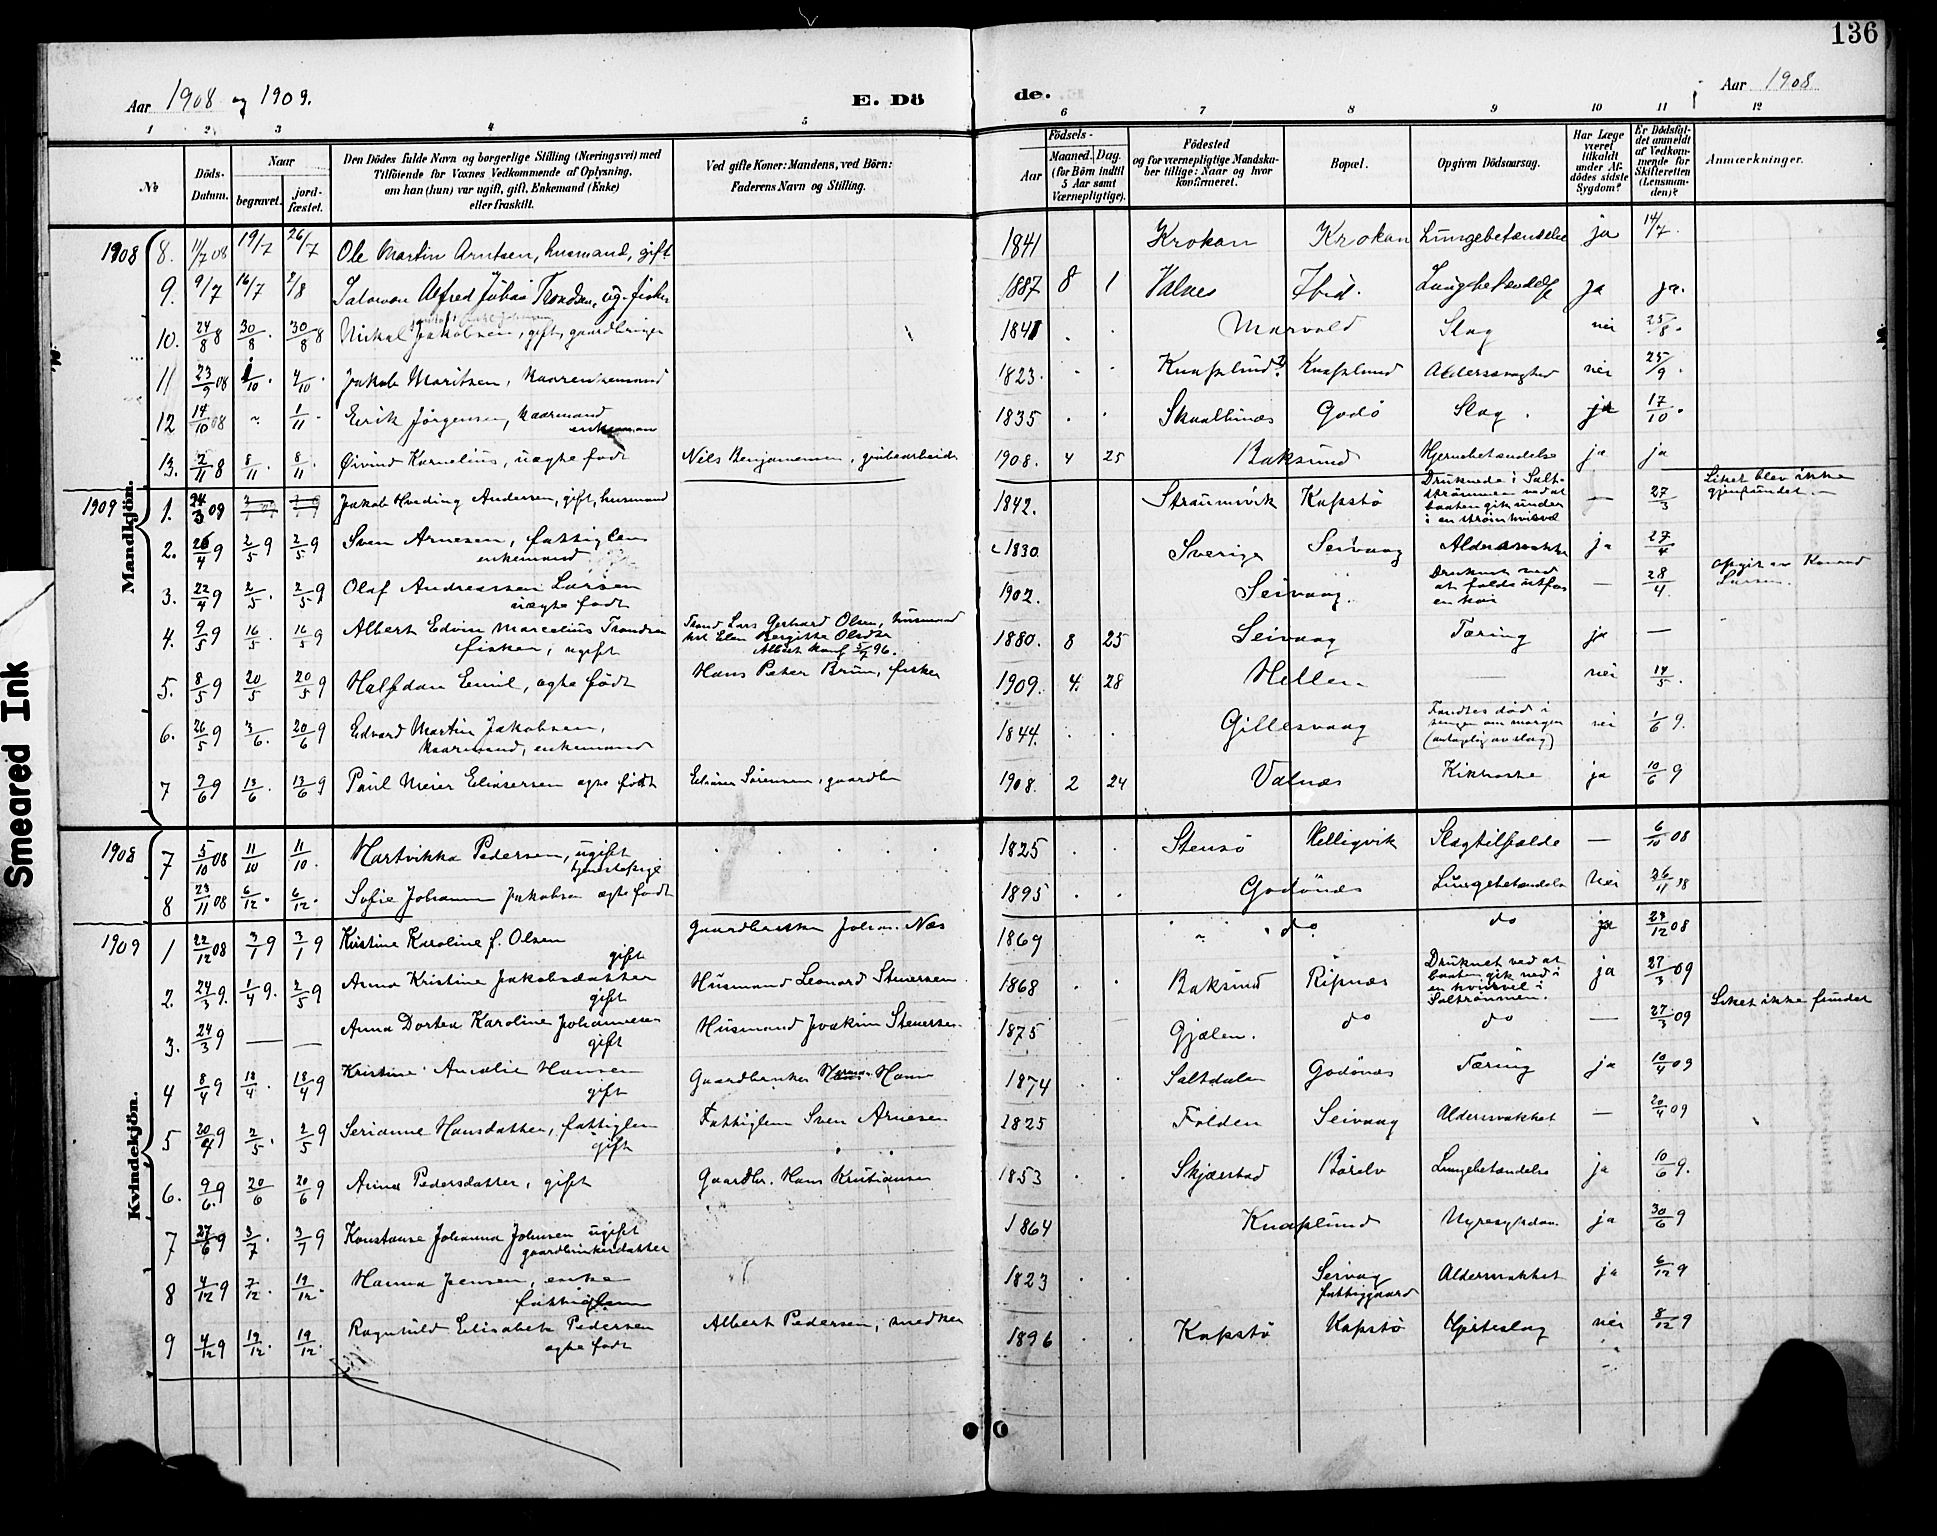 136
Aar 1908 og 1909.
E. Dö
de.
Aar 1908
1 2 3 4 5 6 7 8 9 10 11 12
№
Döds-Datum.
Naar
begravet.
jord-fæstet.
Den Dödes fulde Navn og borgerlige Stilling (Næringsvei) med
Tilföiende for Voxnes Vedkommende af Oplysning,
om han (hun) var ugift, gift, Enkemand (Enke)
eller fraskilt.
Ved gifte Koner: Mandens, ved Börn:
Faderens Navn og Stilling.
Födsels-
Aar
Maaned. Dag.
(for Börn indtil
5 Aar samt
Værnepligtige).
Födested
og for værnepligtige Mandska-
ber tillige: Naar og hvor
konfirmeret.
Bopæl.
Opgiven Dödsaarsag.
Har Læge
været
tilkaldt
under Af-
dödes sidste
Sygdom?
Er Dödsfal-
det anmeldt
af Vedkom-
mende for
Skifteretten
(Lensman-
den)?
Anmærkninger.
Mandkjön.
1908 8. 11/7 08 19/7 26/7 Ole Martin Arntsen, husmand, gift 1841 Krokan Krokan Lungebetændelse ja 14/7.
9. 9/7 16/7 2/8 Salomon Alfred Johan Trondsen, ug. fisker 1887 8 1 Valnes Ibid. Lungebetændelse ja ja.
10. 24/8 8 30/8. 30/8 8 Nikal Jakobsen, gift, gaardbruger 1841 . . Marvold Slag nei 25/8.
11 23/9 08 1/10. 4/10. Jakob Moritsen, kaarenkemand 1823. . . Knaplund? Knaplund Alderssvaghed nei 25/9.
12 14/10 08 ~ 1/11. Erik Jørgensen, kaarmand
enkeman 1835 . . Skaalbunæs Godö Slag. ja 17/10.
13. 2/11 8 8/11. 8/11. Øivind Kornelius, uægte født Nils Benjaminsen, grubearbeider 1908. 4 25 Baksund Hjernebetændelse ja ja
1909 1. 24/3 09 Jakob Hveding Andersen, gift, husmand 1842. Straumsvik Kapstö Druknede i Salt-
strömmen ved at
baaten gik under
i en strømhvirvel — 27/3 Liket blev ikke
gjenfundet.
2. 26/4 9 2/5 9 2/5 9 Sven Arnesen, fattiglem
enkemand 1830. Sverige Seivaag Alderssvakhet ja 27/4
3. 22/4 9 2/5. 2/5 9 Olaf Andreassen Larsen
uægte født 1902. Seivaag. Druknet ved
at falde ut for
en kai — 28/4. opgit av Konrad
Larsen.
4. 9/5 9 16/5. 16/5 9 Albert Edvin Marcelius Trondsen
fisker, ugift Trond Lars Gerhard Olsen, husmand
Elen Bergitte Olsdtr
Albert konf. 5/7 96. 1880. 8 25 Seivaag Tæring ja —
5. 8/5 9 20/5 20/5 9 Halfdan Emil, ægte født Hans Peter Brun, fisker 1909. 4. 28 Hellen — nei 14/5.
6. 26/5 9 3/6. 20/6 9 Edvard Martin Jakobsen,
kaarmand, enkemand 1844. . . Gillesvaag Fandtes død i
sengen om morgen
(antagelig av slag) nei 1/6 9.
7 2/6 9 13/6. 13/6 9 Paul Meier Eliasersen ægte født Eliaser Sørensen, gaardbr 1908. 2 24 Valnæs Kikhoste ja 10/6 9
Kvindekjön.
1908 7 5/10 08 11/10 11/10. Hartvikka Pedersen, ugift
tjenestepige 1825 . . Stensö Helligvik Slagtilfælde — 6/10 08
8 23/11 08 6/12. 6/12. Sofie Johanna Jakobsen ægte født 1895 . . Godönes Lungebetændelse nei 26/11 08
1909 1 22/12 08 3/1 9 3/1 9 Kristine Karoline f. Olsen
gift Gaardbruker Johan Næs 1869 do do ja 24/12 08
2. 24/3 9. 1/4 9. 2/5 9 Anna Kristine Jakobsdatter
gift Husmand Leonard Stenersen 1868 Baksund Ripnæs Druknet ved at
baaten gik ned i
en hvirvel i
Saltströmmen. ja 27/3 09
3. 24/3 9 — — Anna Dortea Karoline Johannesen
gift Husmand Joakim Stenersen 1875 Gjælen. do do — 27/3 09 Liket ikke fundet
4 8/4 9 18/4. 18/4 9 Kristine Amalie Hansen
gift Gaardbruker Hansen 1874 . . Saltdalen Godönes Tæring ja 10/4 09
5 20/4 9 2/5. 2/5 9 Serianne Hansdatter, fattiglem
gift Fattiglem Sven Arnesen 1825 Folden Seivaag Alderssvakhet — 20/4 09
6. 9/6. 9 20/6 20/6 9 Anna Pedersdatter, gift Gaardbr. Hans Kristiansen 1853 . Skjærstad Börelv Lungebetændelse ja 10/6 9.
7 27/6 9 3/7. 3/7 9 Konstanse Johanna Johnsen ugift
gaardbrukerdatter 1864 Knaplund Nyresygdom ja 30/6 9
8 4/12 9 7/12. 19/12. Hanna Jensen, enke
fattiglem 1823 . . Seivag
fattiggaard Alderssvakhet ja 6/12 9
9 4/12 9 19/12. 19/12. Ragnhild Elisabeth Pedersen
ægte født Albert Pedersen, snedker 1896 . . Kapstö Kapstö Hjerteslag nei 8/12 9
Smeared Ink